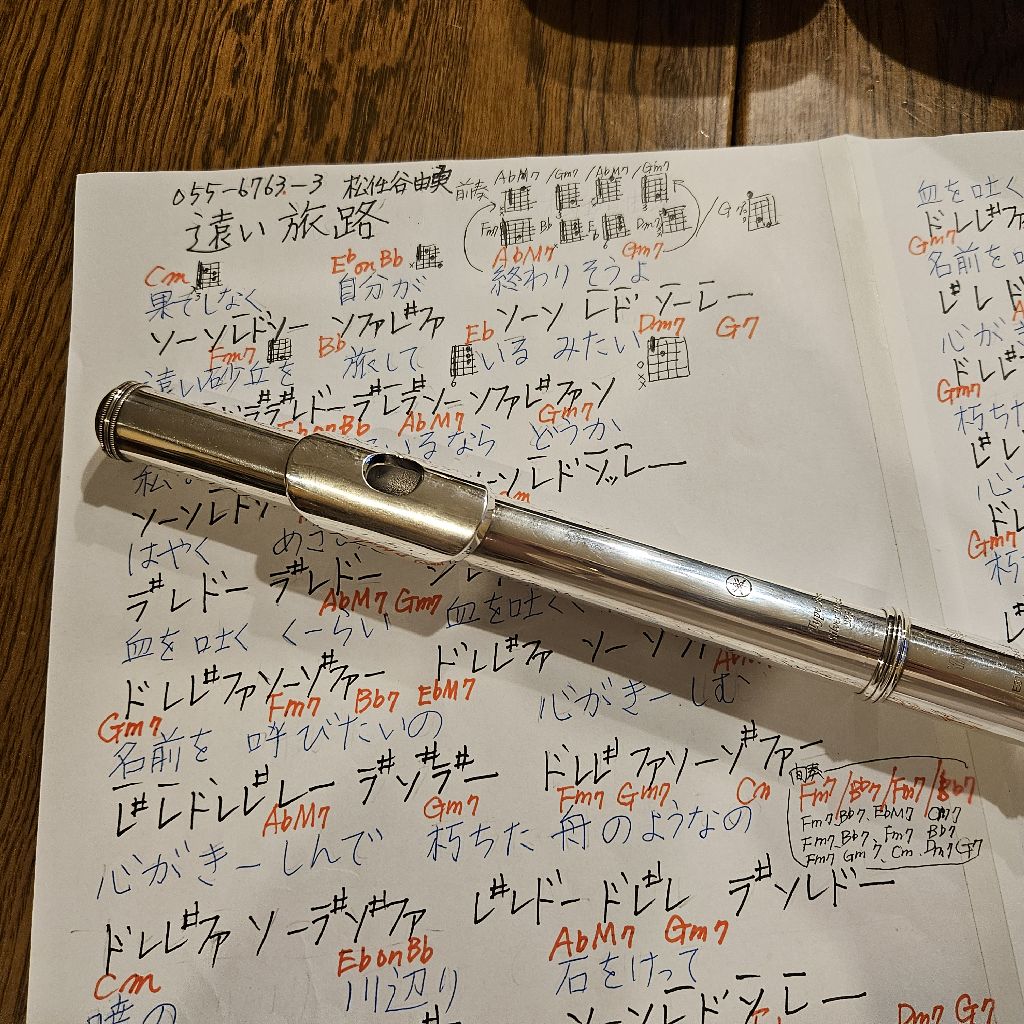 055-6763-3 松任谷由実 前奏 AbM7 /Gm7 /AbM7 /Gm7
遠い旅路 Fm7 Bb Eb Dm7 /G7
Cm EbonBb AbM7 Gm7
果てしなく 自分が 終わりそうよ
ソーソレドソー ソファレ#ファ ソーソ レド ソーレー
Fm7 Bb Eb Dm7 G7
遠い砂丘を 旅して いる みたい
ラ#ラ#レドー ラ#レラ#ソー ソファレ#ファソ
EbonBb AbM7 Gm7
私 いるなら どうか
ソーソレド ソレドソッレー
はやく
ラ#レドー ラ#レドー
AbM7 Gm7
血を吐く くーらい 血を吐く
ドレレ#ファソーソ#ファー ドレレ#ファ ソーソ
Gm7 Fm7 Bb7 EbM7
名前を 呼びたいの 心がきーしむ
レ#レドレレ#レー ラ#ソ#ラ#ー ドレレ#ファソーソ#ファー
AbM7 Gm7 Fm7 Gm7 Cm
心がきーしんで 朽ちた 舟のようなの
間奏 Fm7/Bb7/Fm7/Bb7
Fm7 Bb7 EbM7 Cm7
Fm7 Bb7 Fm7 Bb7
Fm7 Gm7 Cm Dm7 G7
ドレレ#ファ ソーラ#ソ#ファ レ#レドー ドレ#レ ラ#ソレドー
Cm EbonBb AbM7 Gm7
暁の 川辺り 石をけって
ソーソレドソレー
Dm7 G7
血を吐く
Gm7
名前を
レ#レド
心がき
ドレレ#
Gm7
朽ちた
Gm7
朽